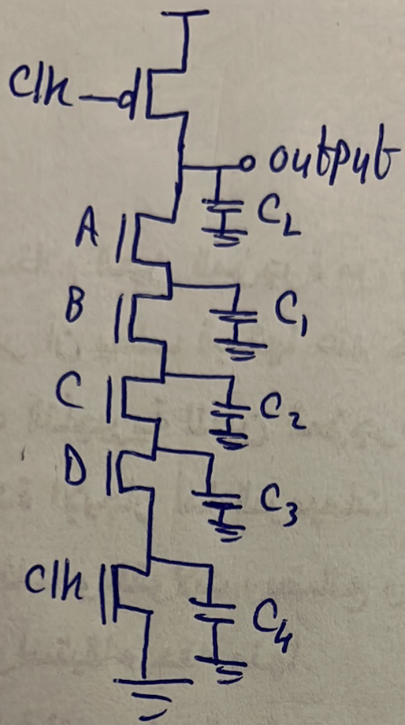 Clk
output
C_L
A
C_1
B
C_2
C
D
C_3
Clk
C_4